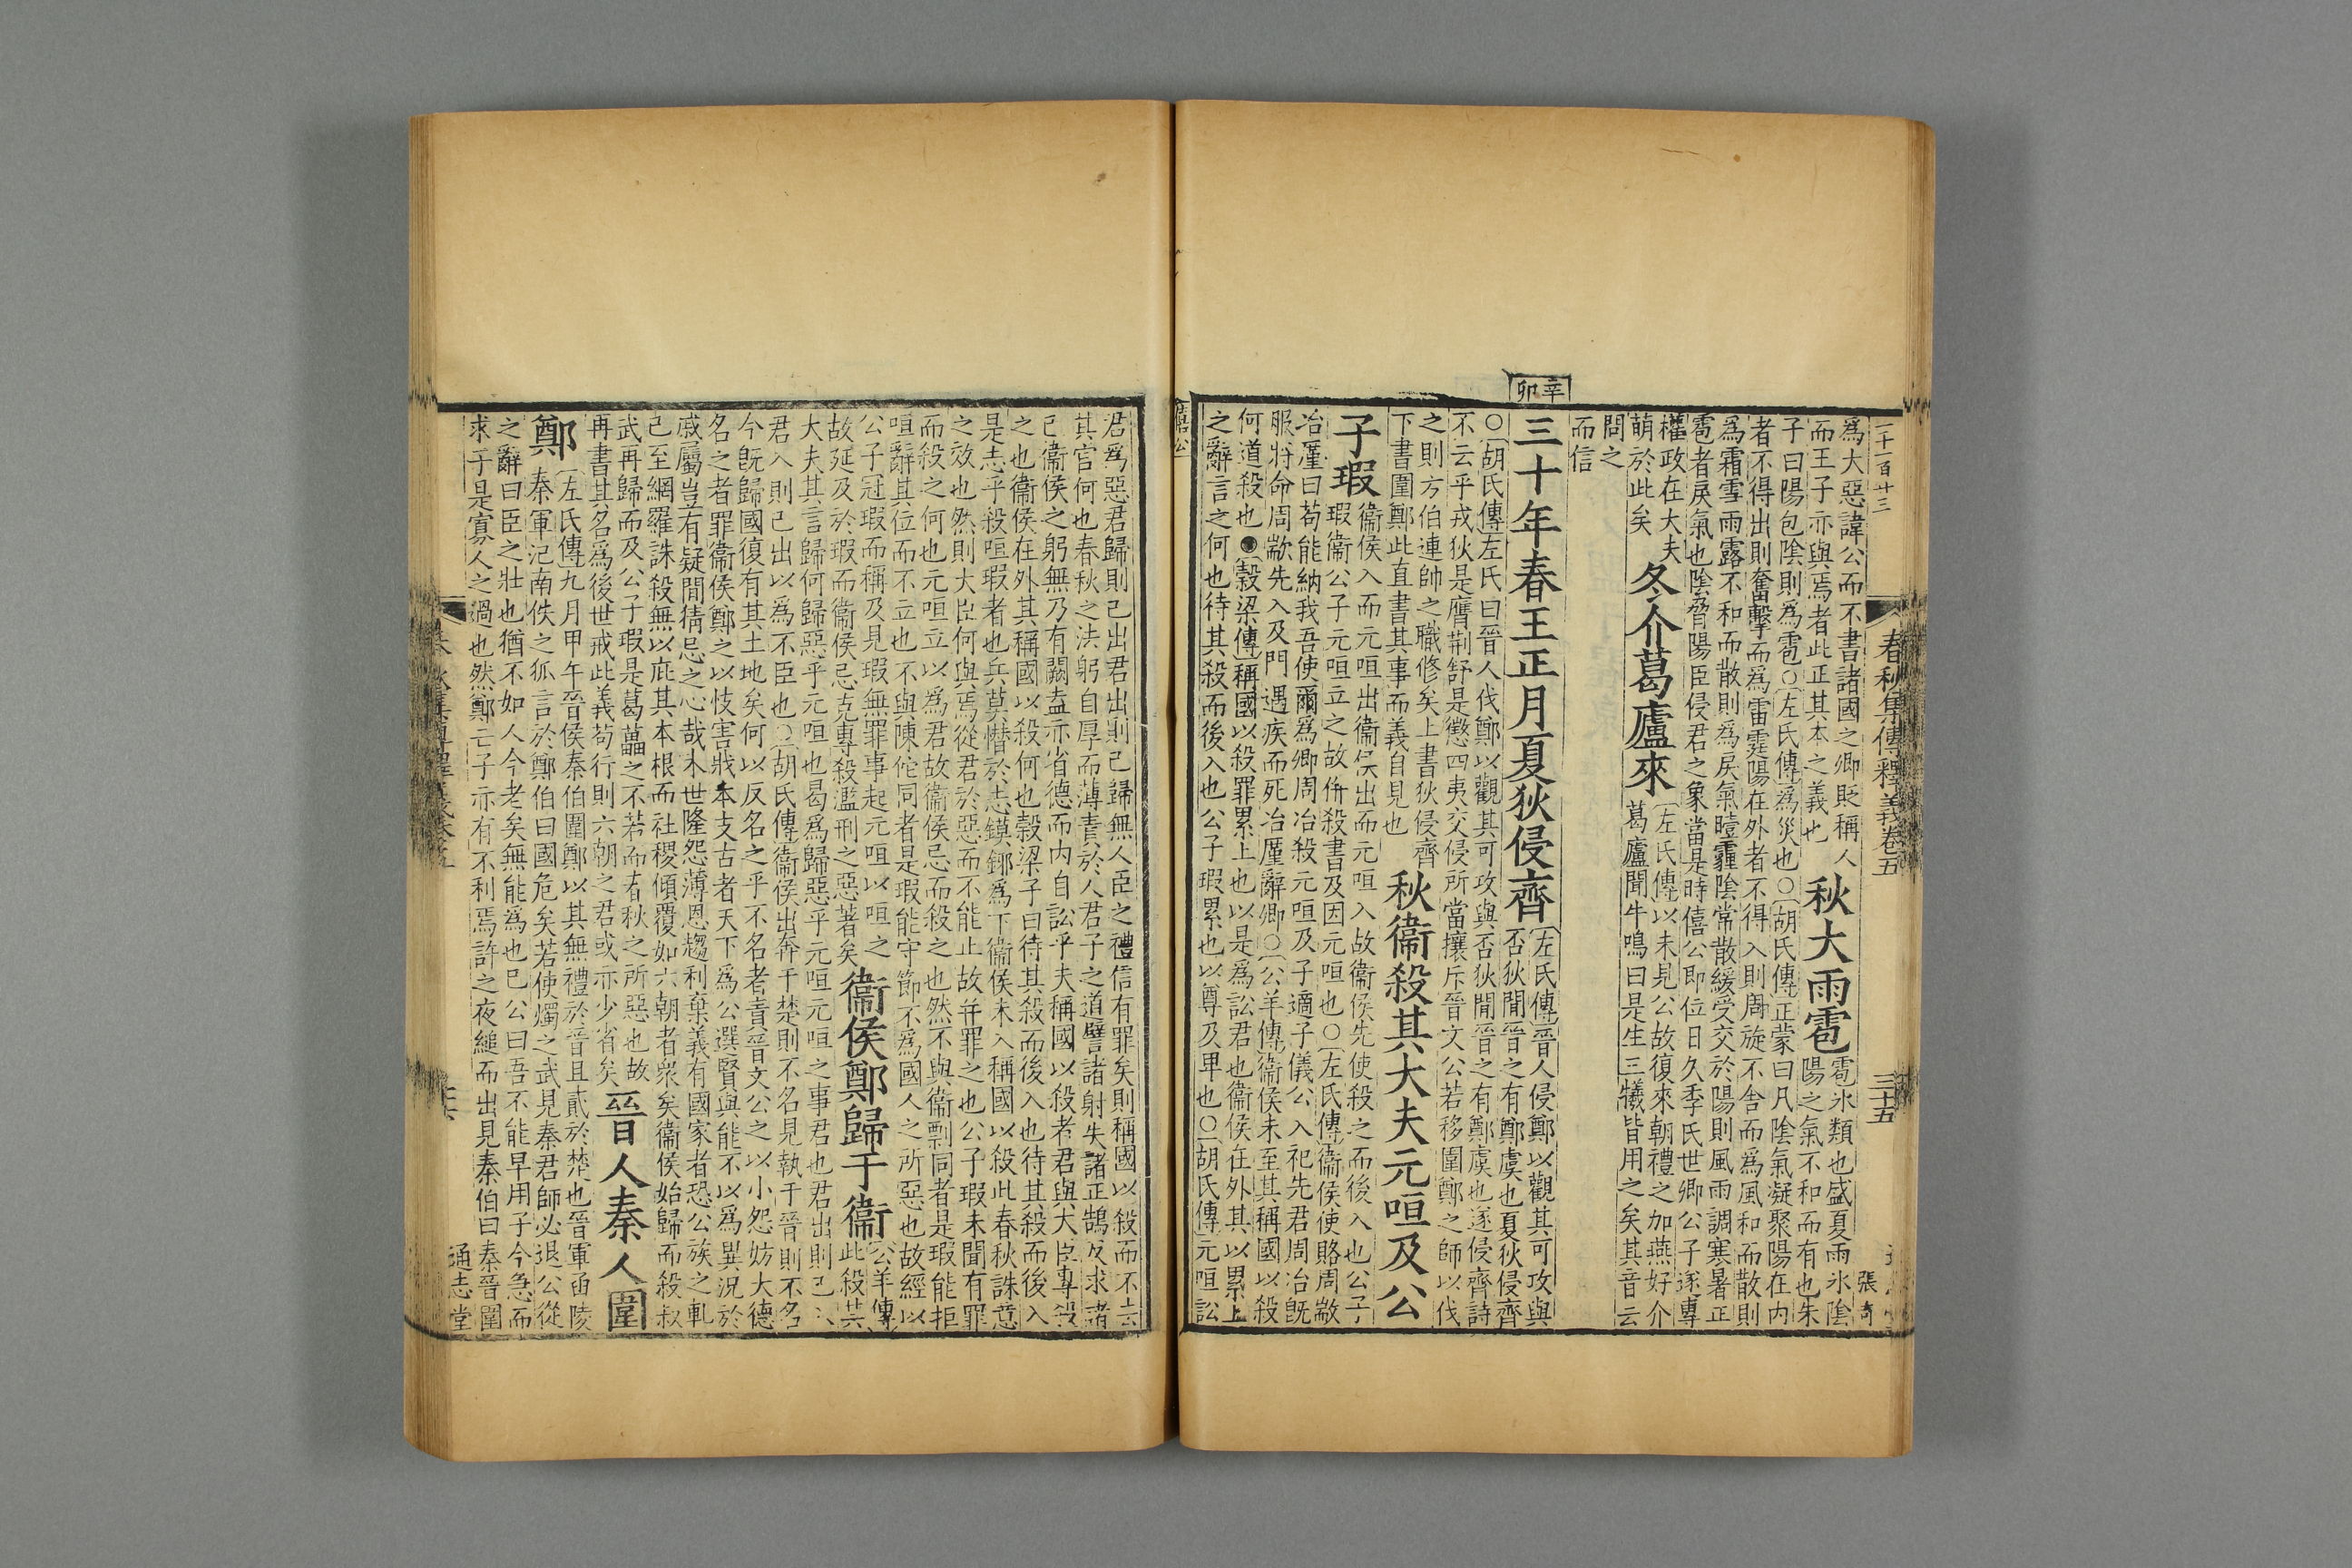 二千一百廿三
春秋集傳釋義卷五
三十五
張奇
為大惡諱公而不書諸國之卿貶稱人
而王子亦與焉者此正其本之義也
秋大雨雹
雹氷類也盛夏雨氷陰
陽之氣不和而有也朱
子曰陽包陰則為雹○左氏傳為災也○胡氏傳正蒙曰凡陰氣凝聚陽在内
者不得出則奮擊而為雷霆陽在外者不得入則周旋不舍而為風和而散則
為霜雪雨露不和而散則為戾氣曀霾陰常散緩受交於陽則風雨調寒暑正
雹者戾氣也陰脅陽臣侵君之象當是時僖公即位日久季氏世卿公子遂專
權政在大夫
萌於此矣
冬介葛廬來
左氏傳以未見公故復來朝禮之加燕好介
葛廬聞牛鳴曰是生三犧皆用之矣其音云
問之
而信
辛卯
三十年春王正月夏狄侵齊
左氏傳晉人侵鄭以觀其可攻與
否狄間晉之有鄭虞也夏狄侵齊
○胡氏傳左氏曰晉人伐鄭以觀其可攻與否狄間晉之有鄭虞也遂侵齊詩
不云乎戎狄是膺荆舒是懲四夷交侵所當攘斥晉文公若移圍鄭之師以伐
之則方伯連帥之職修矣上書狄侵齊
下書圍鄭此直書其事而義自見也
秋衞殺其大夫元咺及公
子瑕
衞侯入而元咺出衞侯出而元咺入故衞侯先使殺之而後入也公子
瑕衞公子元咺立之故併殺書及因元咺也○左氏傳衞侯使賂周歂
冶廑曰苟能納我吾使爾為卿周冶殺元咺及子適子儀公入祀先君周冶既
服將命周歂先入及門遇疾而死冶廑辭卿○公羊傳衞侯未至其稱國以殺
何道殺也●穀梁傳稱國以殺罪累上也以是為訟君也衞侯在外其以累上
之辭言之何也待其殺而後入也公子瑕累也以尊及卑也○胡氏傳元咺訟
僖公
君為惡君歸則已出君出則已歸無人臣之禮信有罪矣則稱國以殺而不去
其官何也春秋之法躬自厚而薄責於人君子之道譬諸射失諸正鵠反求諸
已衞侯之躬無乃有闕盍亦省德而内自訟乎夫稱國以殺者君與大臣專殺
之也衞侯在外其稱國以殺何也穀梁子曰待其殺而後入也待其殺而後入
是志乎殺咺瑕者也兵莫憯於志鏌鋣為下衞侯未入稱國以殺此春秋誅意
之效也然則大臣何與焉從君於惡而不能止故并罪之也公子瑕未聞有罪
而殺之何也元咺立以為君故衞侯忌而殺之也然不與衞剽同者是瑕能拒
咺辭其位而不立也不與陳佗同者是瑕能守節不為國人之所惡也故經以
公子冠瑕而稱及見瑕無罪事起元咺以咺之
故延及於瑕而衞侯忌克專殺濫刑之惡著矣
衞侯鄭歸于衞
公羊傳
此殺其
大夫其言歸何歸惡乎元咺也曷為歸惡乎元咺元咺之事君也君出則已
君入則已出以為不臣也○胡氏傳衞侯出奔于楚則不名見執于晉則不名
今旣歸國復有其土地矣何以反名之乎不名者責晉文公之以小怨妨大德
名之者罪衞侯鄭之以忮害戕本支古者天下為公選賢與能不以為異況於
戚屬豈有疑間猜忌之心哉末世隆怨薄恩趨利棄義有國家者恐公族之軋
已至網羅誅殺無以庇其本根而社稷傾覆如六朝者衆矣衞侯始歸而殺叔
武再歸而及公子瑕是葛藟之不若而春秋之所惡也故
再書其名為後世戒此義苟行則六朝之君或亦少省矣
晉人秦人圍
鄭
左氏傳九月甲午晉侯秦伯圍鄭以其無禮於晉且貳於楚也晉軍函陵
秦軍氾南佚之狐言於鄭伯曰國危矣若使燭之武見秦君師必退公從
之辭曰臣之壯也猶不如人今老矣無能為也已公曰吾不能早用子今急而
求子是寡人之過也然鄭亡子亦有不利焉許之夜縋而出見秦伯曰秦晉圍
通志堂